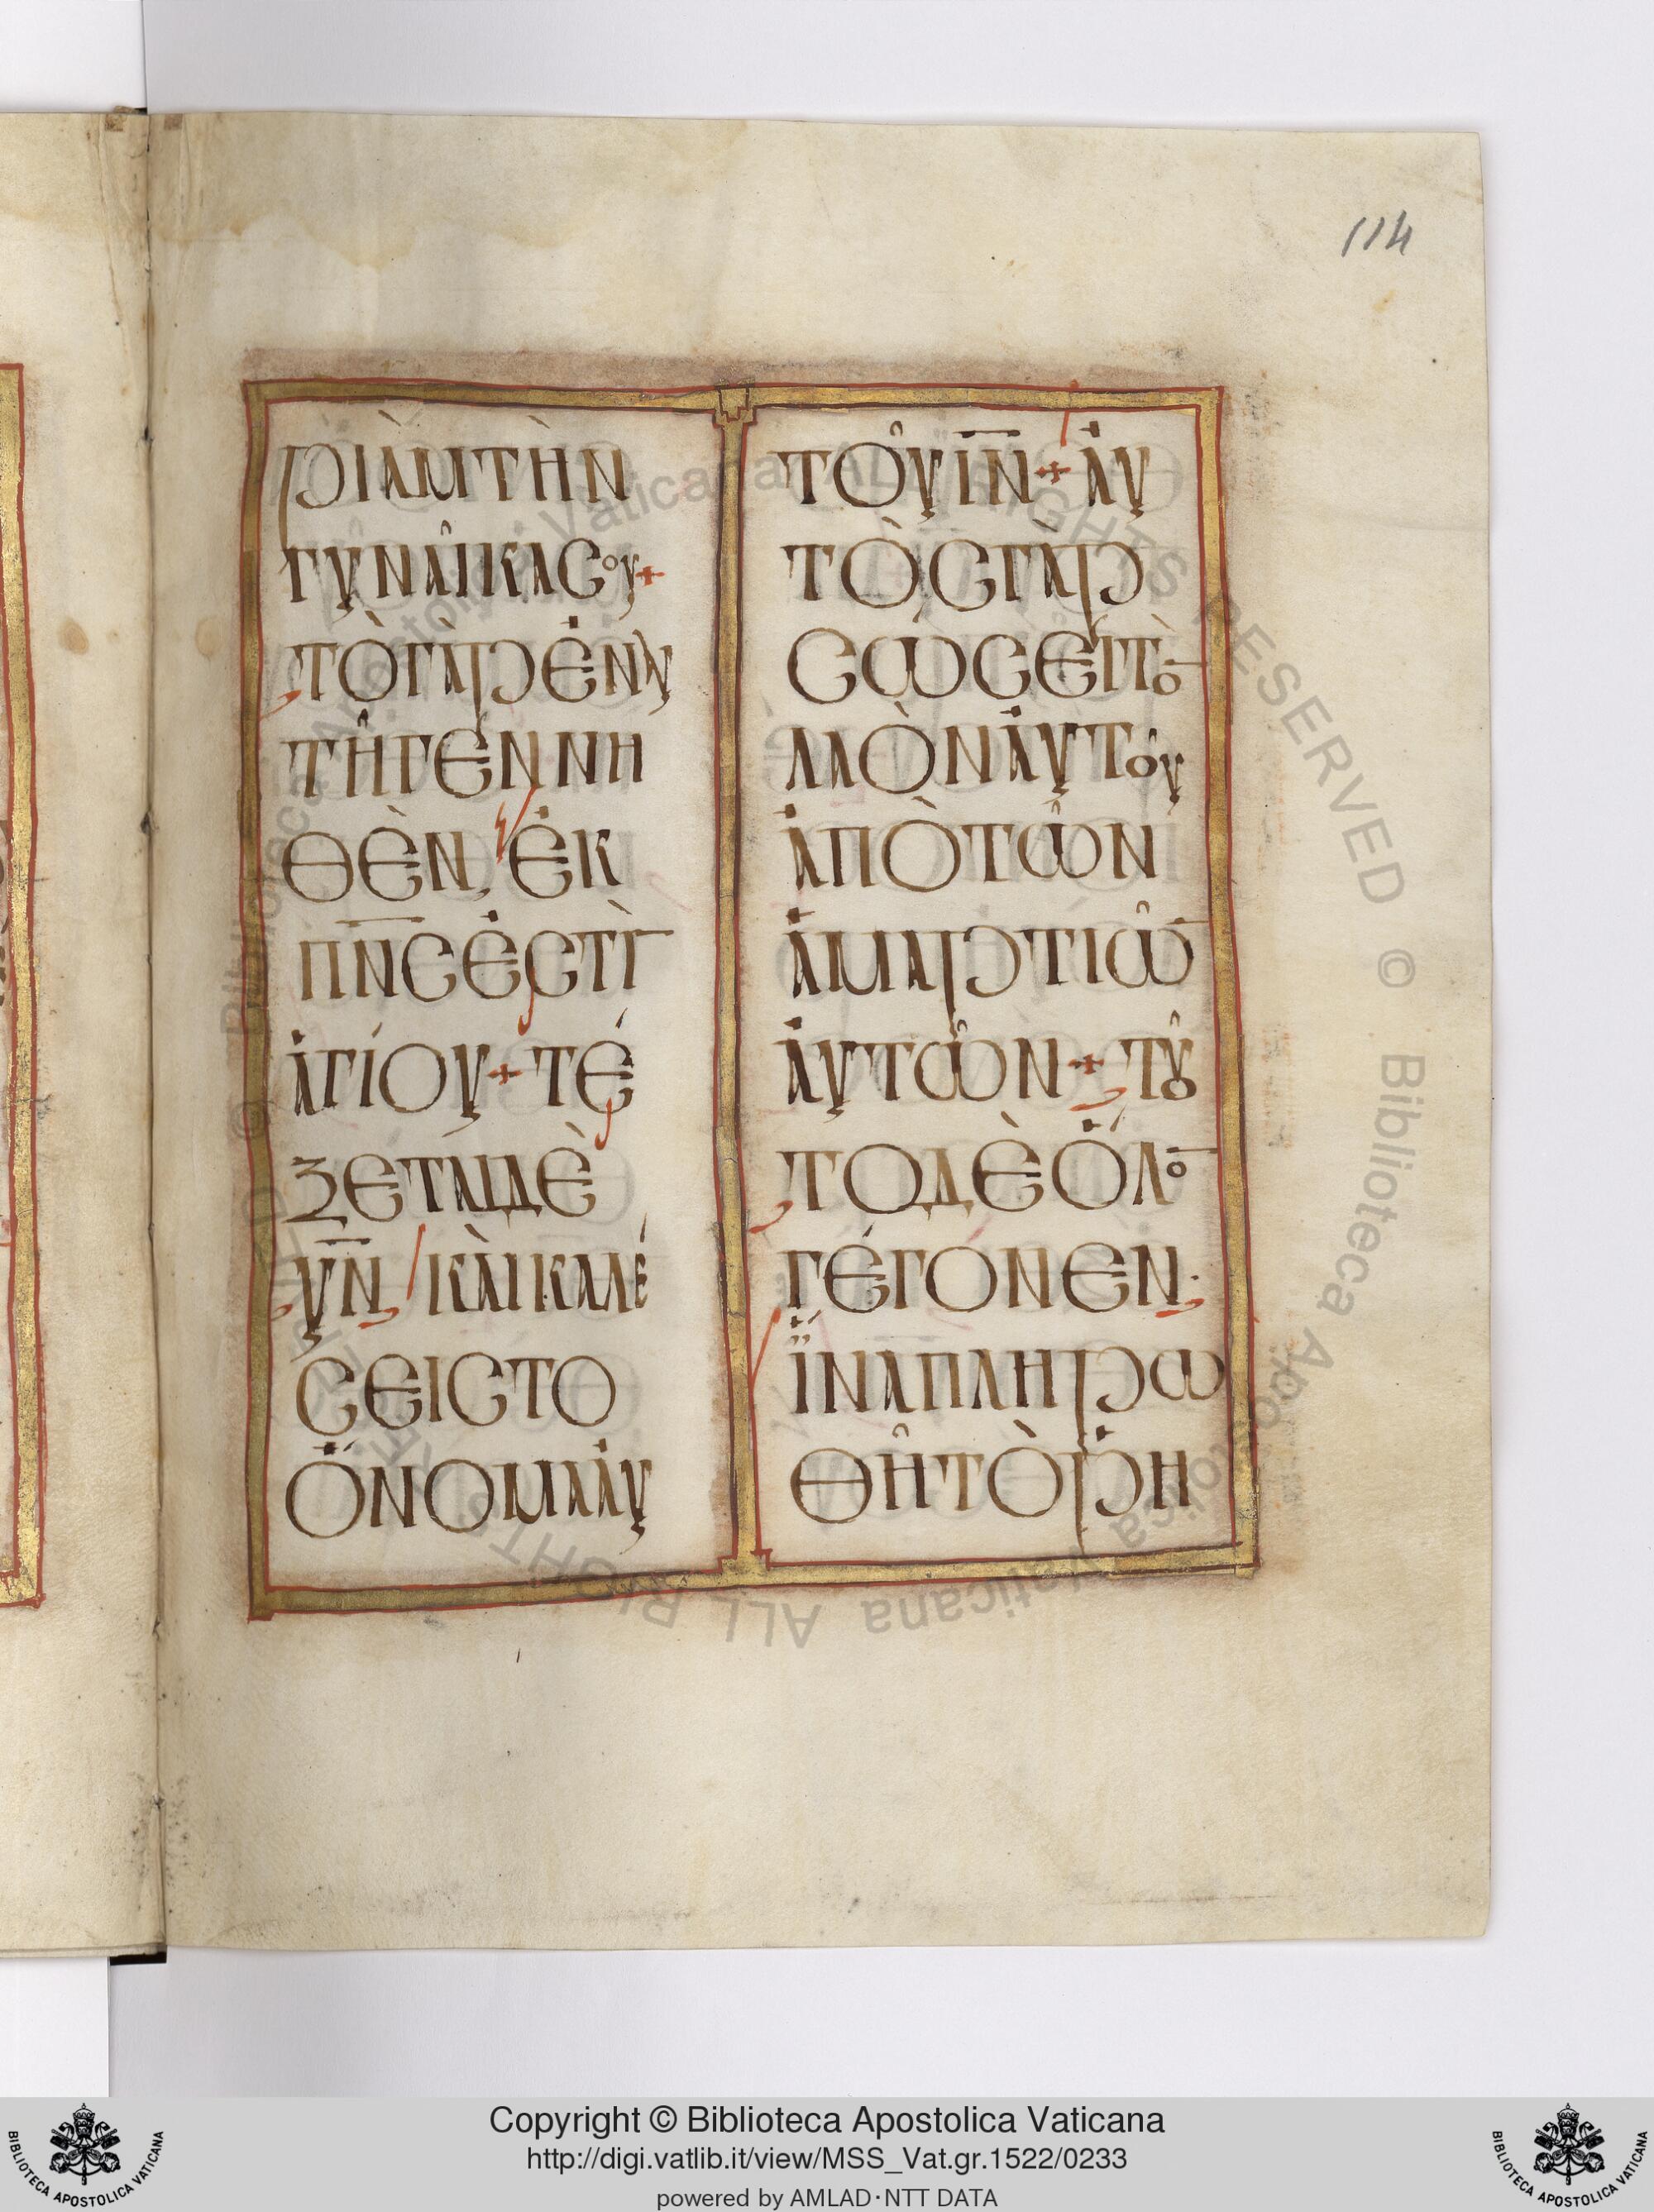 114
ΡΙᾺΜΤῊΝ
ΓΥΝΑῖΚΑϹΟΥ+
ΤῸΓᾺΡἘΝΑΥ
ΤΗ͂ΓΕΝΝΗ
ΘῈΝ, ἘΚ
Π̅Ν̅ϹἘϹΤῚ
ἈΓΊΟΥ+ΤΈ
ΞΕΤΑΙΔῈ
Υ̅Ν̅, ΚΑῚΚΑΛΈ
ϹΕΙϹΤΟ
ὌΝΟΜΑἈΥ
ΤΟΥ͂Ι̅Ν̅+ἈΥ
ΤῸϹΓᾺΡ
ϹΏϹΕΙΤῸ
ΛΑῸΝἈΥΤΟΥ͂
ἈΠῸΤΩ͂Ν
ἉΜΑΡΤΙΩ͂
ἈΥΤΩ͂Ν+ΤΟΥ͂
ΤΟΔῈὍΛΟ
ΓΈΓΟΝΕΝ·
ἽΝΑΠΛΗΡΩ
ΘΗ͂ΤῸῬΗ
Copyright © Biblioteca Apostolica Vaticana
http://digi.vatlib.it/view/MSS_Vat.gr.1522/0233
powered by AMLAD·NTT DATA
BIBLIOTECA APOSTOLICA VATICANA
BIBLIOTECA APOSTOLICA VATICANA
© Biblioteca Apostolica Vaticana ALL RIGHTS RESERVED © Biblioteca Apostolica Vaticana ALL RIGHTS RESERVED